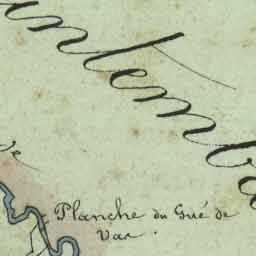 ntemb
Planche du Gué de
Var.